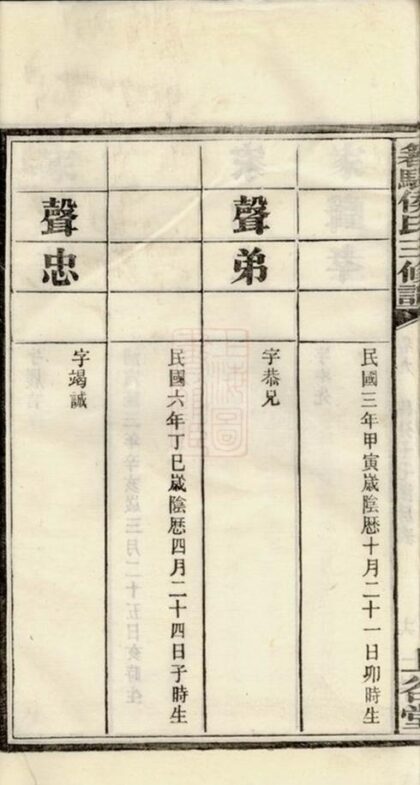 侯氏三修譜
上谷堂
民國三年甲寅歲陰歷十月二十一日卯時生
聲弟
字恭兄
民國六年丁巳歲陰歷四月二十四日子時生
聲忠
字竭誠